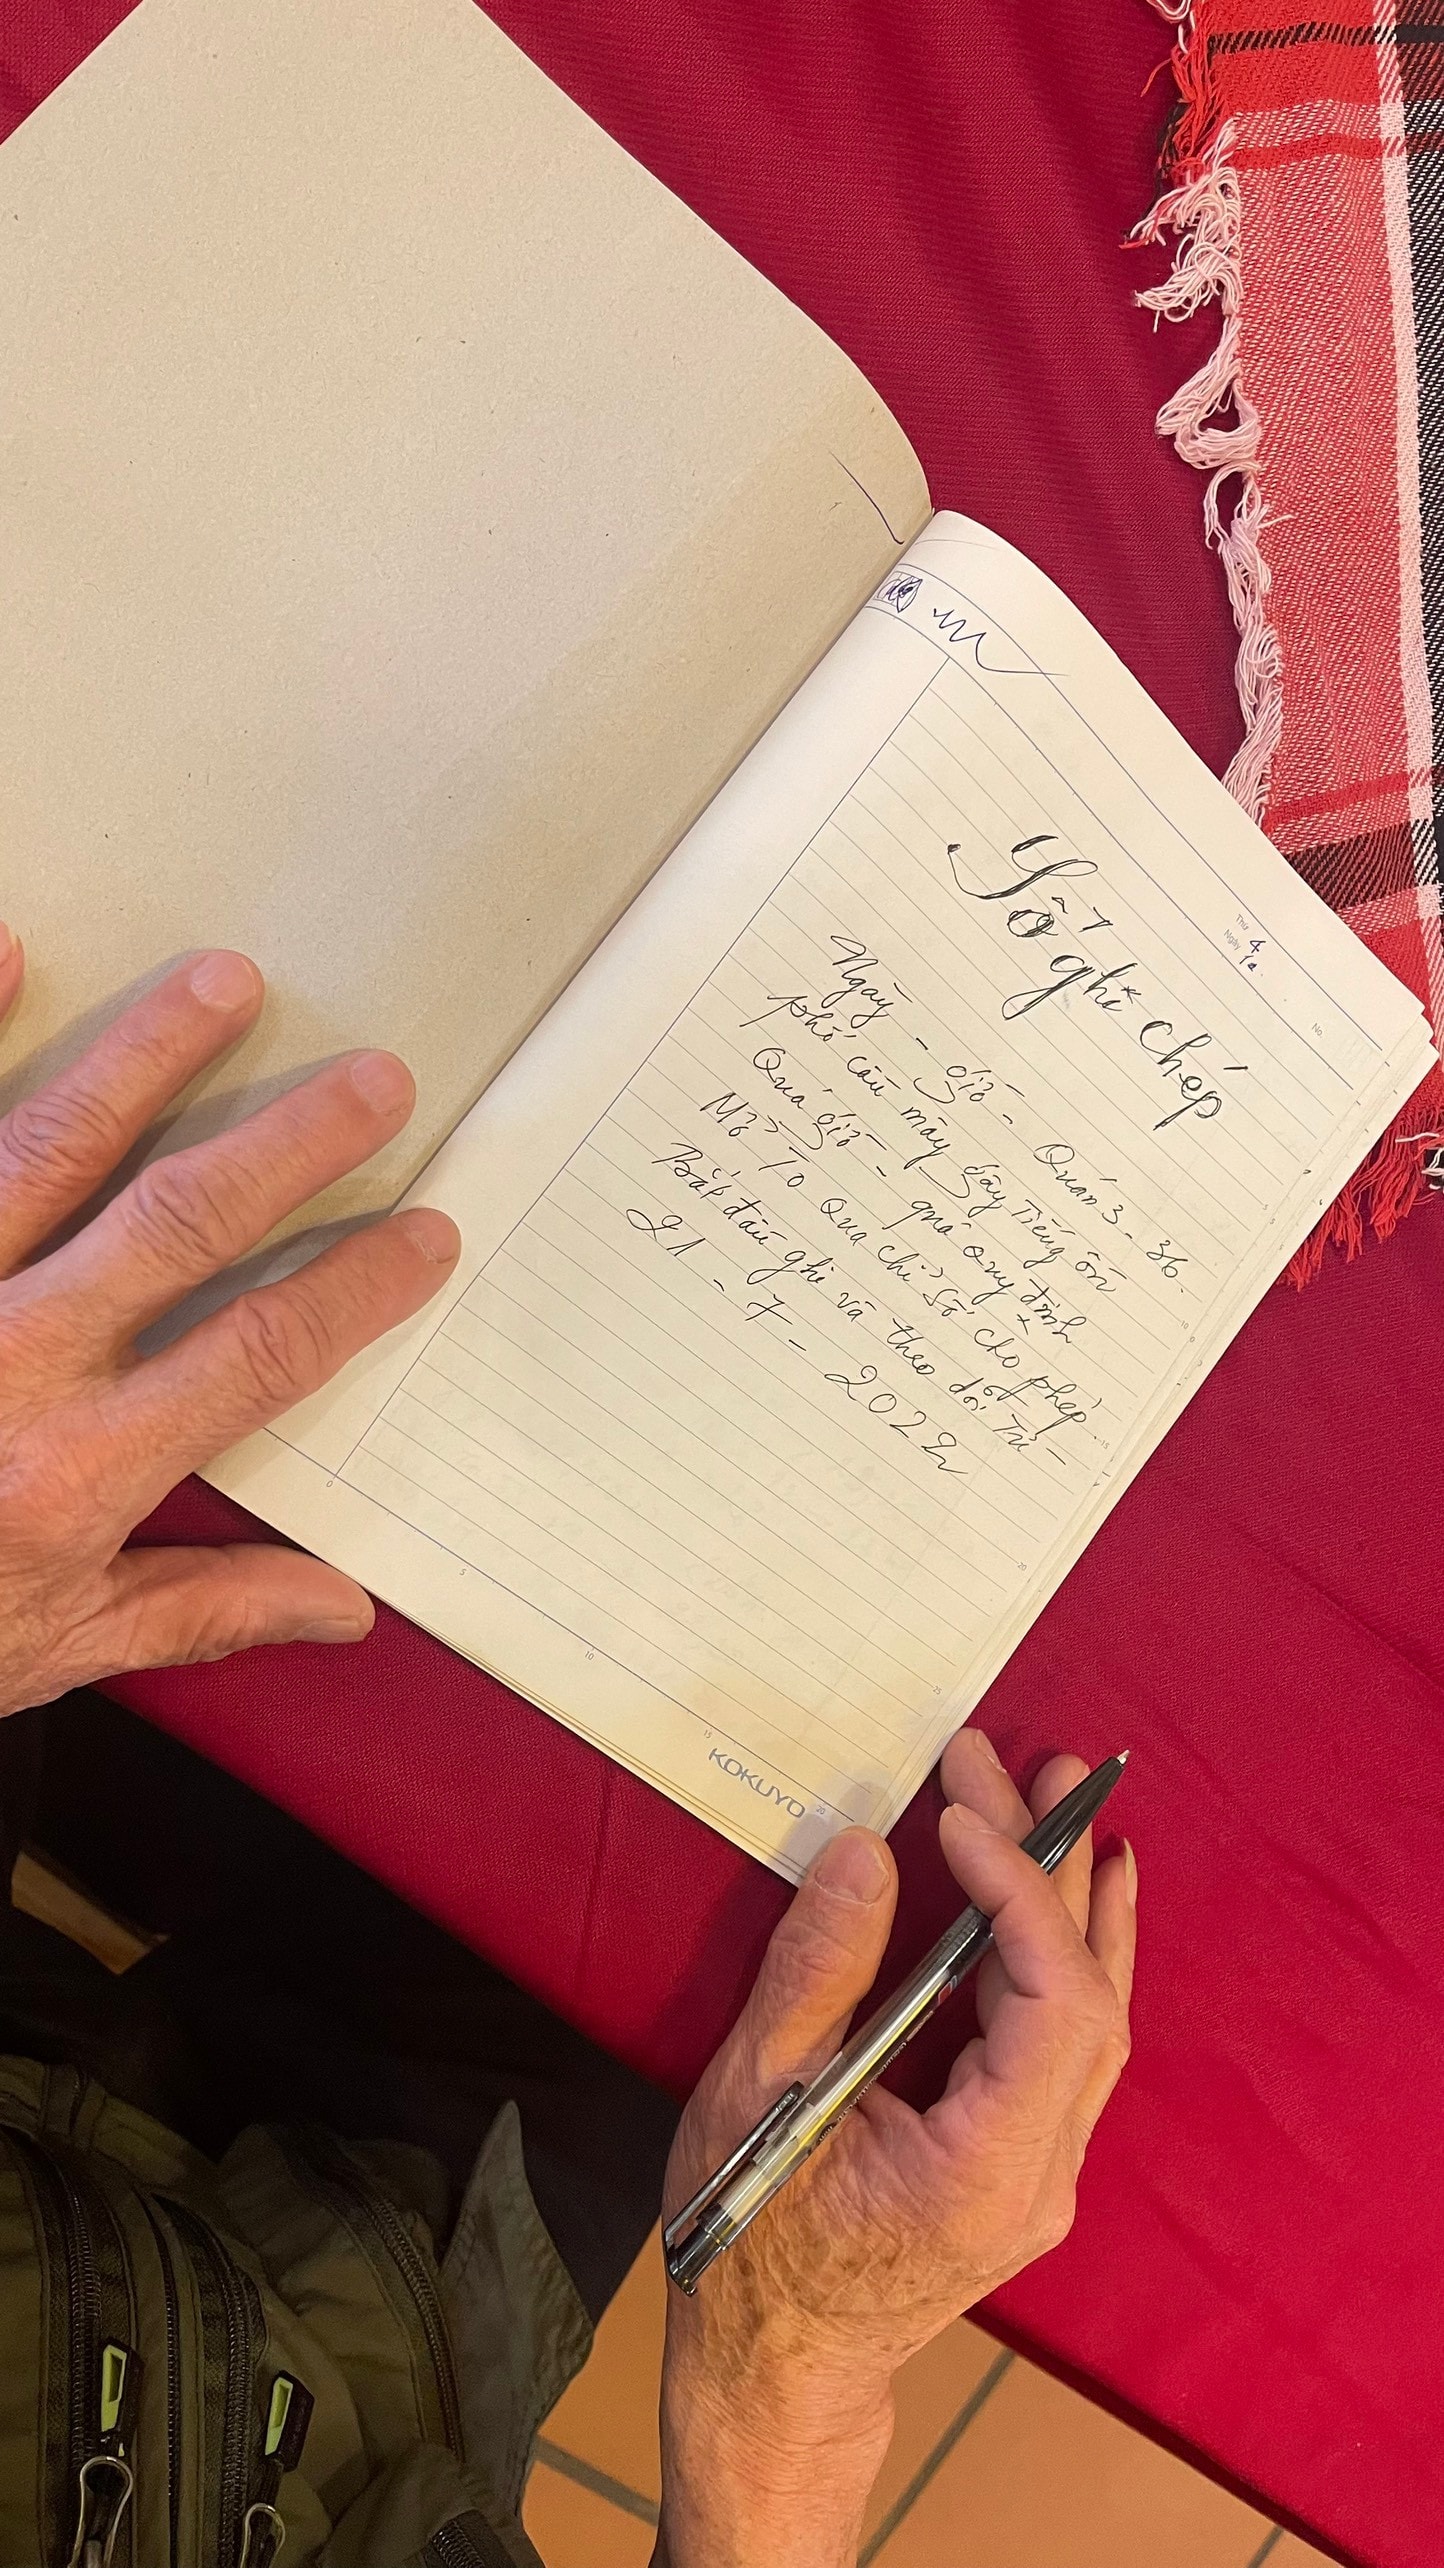 Thứ 4
Ngày
No.
Sổ ghi chép
Ngày - giờ - Quán 3 - 36
phố cầu mây gây tiếng ồn
Quá giờ - quá quy định
Mở To Qua chỉ số cho phép
Bắt đầu ghi và theo dõi Từ -
21 - 7 - 2022
5
10
15
20
25
0
5
10
15
20
KOKUYO